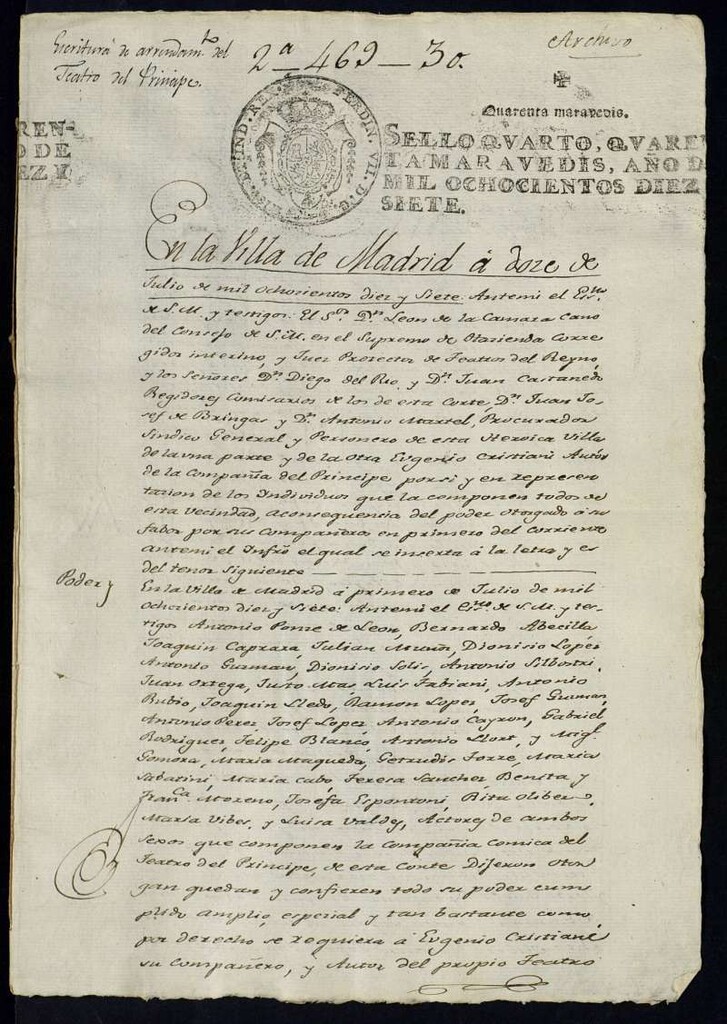 Escritura de arrendam.to del
Teatro del Principe.
2ª — 469 — 30.
Archivo
Quarenta maravedis.
SELLO QVARTO, QVAREN
TA MARAVEDIS, AÑO D
MIL OCHOCIENTOS DIEZ
SIETE.
REN-
O DE
EZ Y
FERDIN. VII. D. G.
HISP. ET IND. REX.
En la Villa de Madrid á doze de
Julio de mil ochocientos diez y siete: Antemi el Esno
de S.M. y testigos: El Sor. Dn. Leon de la Camara Cano
del Consejo de S.M. en el Supremo de Hazienda Corre
gidor interino, y Juez Protector de Teatros del Reyno,
y los Señores Dn. Diego del Rio, y Dn. Juan Castanedo
Regidores Comisarios de los de esta Corte, Dn. Juan Jo-
sef de Bringas y Dn. Antonio Martel, Procurador
Sindico General y Personero de esta Heroica Villa
de la una parte y de la otra Eugenio Cristiani Autor
de la Compañia del Principe por si y en represen
tazion de los Individuos que la componen todos de
esta vecindad, a consequencia del poder otorgado a su
fabor por sus compañeros en primero del corriente
antemi el Infro. el qual se inserta á la letra y es
del tenor siguiente
Poder y
En la Villa de Madrid á primero de Julio de mil
ochocientos diez y siete: Antemi el Esno. de S.M. y tes-
tigos Antonio Ponze de Leon, Bernardo Abecilla
Joaquin Caprara, Julian Muñoz, Dionisio Lopez
Antonio Guzman, Dionisio Solis, Antonio Silbostri,
Juan Ortega, Justo Mas, Luis Fabiani, Antonio
Rubio, Joaquin Lledo, Ramon Lopez, Josef Guzman,
Antonio Perez, Josef Lopez, Antonio Cayron, Gabriel
Rodriguez, Felipe Blanco, Antonio Llort, y Migl.
Gamora, Maria Maqueda, Getrudis Torre, Maria
Sabatini, Maria Cabo, Teresa Sanchez, Benita y
Franca. Moreno, Josefa Espontoni, Rita Oliber,
Maria Vibes, y Luisa Valdes, Actores de ambos
sexos que componen la Compañia Comica del
Teatro del Principe, de esta Corte Dijeron Otor
gan quedan y confieren todo su poder cum
plido amplio, especial y tan bastante como
por derecho se requiera á Eugenio Cristiani
su compañero, y Autor del propio Teatro